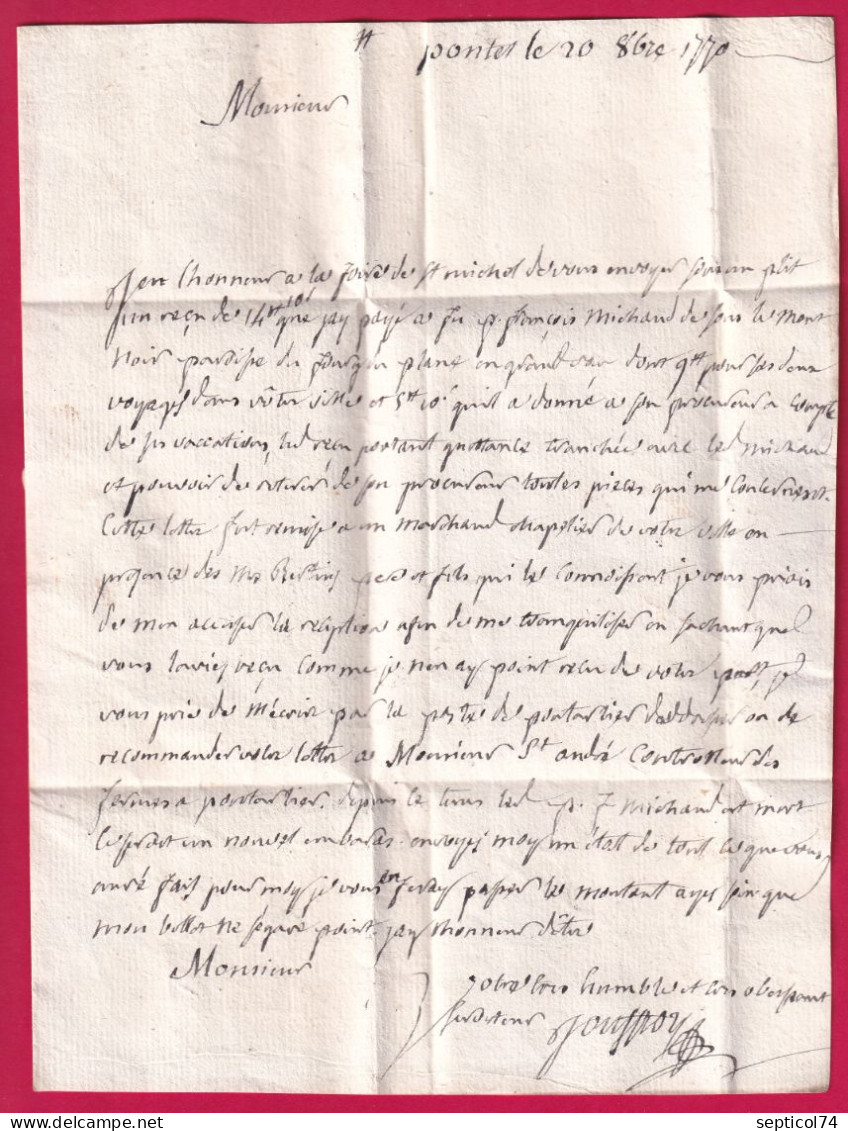 pontets le 20 8bre 1770
Monsieur
Jeu lhonneur a la foire de st michel de vous envoyer sous un plit
un reçu de 14tt 10s que jay payé a fu p. françois Michaud de sous le mont
noir paroisse du en grandvau dont 9tt pour ses deux
voyages dans vôtre ville et 5tt 10s quil a donné a son procureur a compte
de ses vaccations, led reçu portant quittance avec led michaud
et pouvoir de retirer de son procureur toutes pieces qui me concernent.
Cette lettre fut remise a un marchand chapelier de votre ville en
presence des Mrs pere et fils qui le connoissent je vous priois
de men accuser la reception afin de me tranquiliser en sachant que
vous laviez reçu comme je nen ay point reçu de votre part, je
vous prie de mécrire par la poste de pontarlier et de
recommander votre lettre a Monsieur St andré Controlleur des
fermes a pontarlier. depuis ce tems led p. f. Michaud est mort
ce seroit un nouvel embaras. envoyez moy un état de tout ce que vous
avez fait pour moy je vous en feray passer le montant ayes soin que
mon billet neségare point. jay lhonneur dêtre
Monsieur
votre tres humble et tres obeissant
serviteur Jouffroy
septicol74